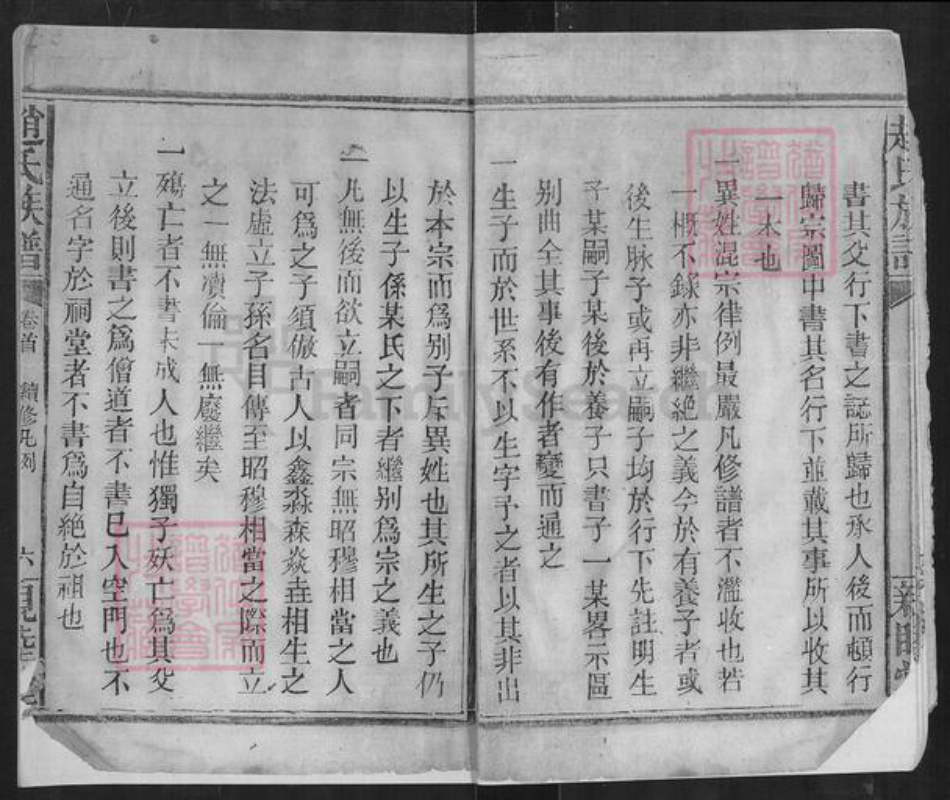 書其父行下書之誌所歸也承人後而頓行
歸宗圖中書其名行下並載其事所以收其
一本也
一異姓混宗律例最嚴凡修譜者不濫收也若
一概不錄亦非繼絕之義今於有養子者或
後生脉子或再立嗣子均於行下先註明生
子某嗣子某後於養子只書子一某畧示區
别曲全其事後有作者變而通之
一生子而於世系不以生字予之者以其非出
於本宗而爲别子斥異姓也其所生之子仍
以生子係某氏之下者繼别爲宗之義也
一凡無後而欲立嗣者同宗無昭穆相當之人
可爲之子須倣古人以鑫淼森焱垚相生之
法虛立子孫名目傳至昭穆相當之際而立
之一無瀆倫一無廢繼矣
一殤亡者不書未成人也惟獨子妖亡爲其父
立後則書之爲僧道者不書已入空門也不
通名字於祠堂者不書爲自絕於祖也
趙氏族譜
卷首
續修凡例
六
FamilySearch